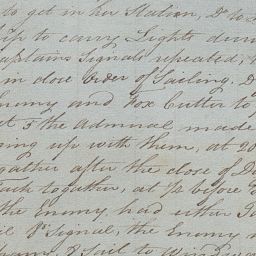 to get in her Station, Do to
Ship to carry Lights dur
Captains Signals repeated,
in close Order of Sailing, D
Enemy and Fox Cutter to
at 5 the Admiral made
ing up with them, at 20
gather after the close of Da
Tack together, at ½ before
the Enemy had either Ta
Signal, the Enemy
Sail to Windward